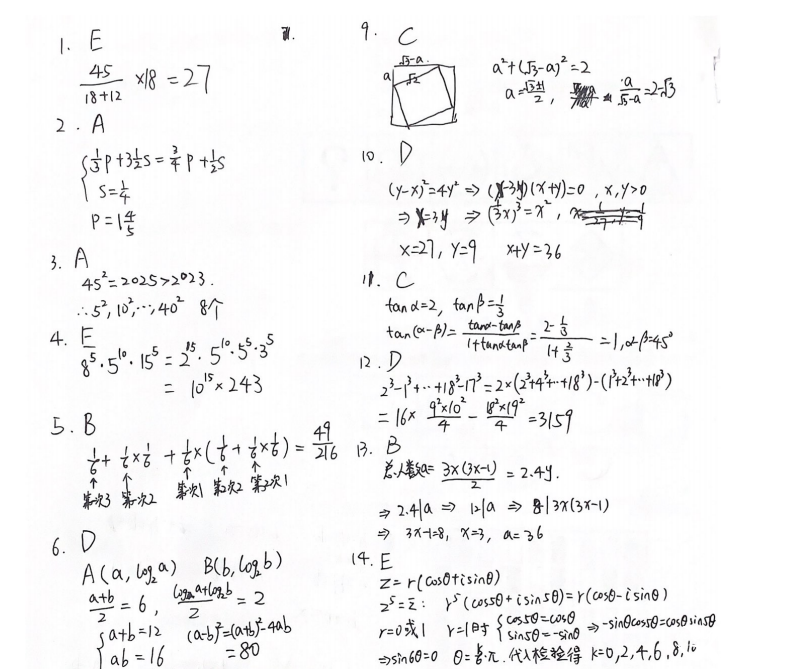 1. E
45/(18+12) ×18 = 27
2. A
{ 1/3 P + 3 1/2 S = 3/4 P + 1/2 S
S = 1/4
P = 1 4/5
3. A
45² = 2025 > 2023.
∴ 5², 10², ⋯, 40² 8个
4. E
8⁵·5¹⁰·15⁵ = 2¹⁵·5¹⁰·5⁵·3⁵
= 10¹⁵ × 243
5. B
1/6 + 1/6 × 1/6 + 1/6 × (1/6 + 1/6 × 1/6) = 49/216
↑ ↑ ↑ ↑ ↑
第一次3 第一次2 第一次1 第二次2 第二次1
6. D
A(a, log₂a) B(b, log₂b)
(a+b)/2 = 6, (log₂a + log₂b)/2 = 2
{ a+b = 12 (a-b)² = (a+b)² - 4ab
ab = 16 = 80
9. C
√3-a
a √2
a² + (√3-a)² = 2
a/(√3-a) = 2-√3
10. D
(y-x)² = 4y² ⇒ (x-3y)(x+y) = 0, x, y > 0
⇒ x = 3y ⇒ (1/3 x)³ = x²,
x = 27, y = 9 x+y = 36
11. C
tan α = 2, tan β = 1/3
tan(α-β) = (tanα - tanβ)/(1 + tanα tanβ) = (2 - 1/3)/(1 + 2/3) = 1, α-β = 45°
12. D
2³-1³+⋯+18³-17³ = 2×(2³+4³+⋯+18³)-(1³+2³+⋯+18³)
= 16× (9²×10²)/4 - (18²×19²)/4 = 3159
13. B
总人数a = 3x(3x-1)/2 = 2.4y.
⇒ 2.4|a ⇒ 12|a ⇒ 8|3x(3x-1)
⇒ 3x-1 = 8, x = 3, a = 36
14. E
z = r(cosθ + i sinθ)
z⁵ = z̄: r⁵(cos5θ + i sin5θ) = r(cosθ - i sinθ)
r = 0 或 1 r = 1时 { cos5θ = cosθ sin5θ = -sinθ ⇒ -sinθcos5θ = cosθ sin5θ
⇒ sin6θ = 0 θ = k/6 π. 代入检验得 k = 0, 2, 4, 6, 8, 10